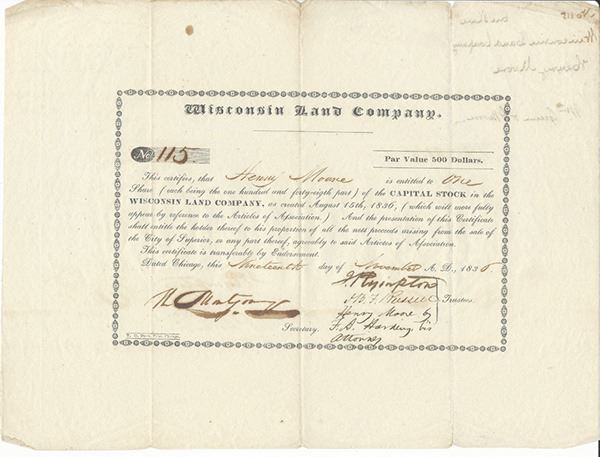 Wisconsin Land Company.
No 115
Par Value 500 Dollars.
This certifies, that Henry Moore is entitled to One
Share (each being the one hundred and forty-eigth part) of the CAPITAL STOCK in the
WISCONSIN LAND COMPANY, as created August 15th, 1836, (which will more fully
appear by reference to the Articles of Association.) And the presentation of this Certificate
shall entitle the holder thereof to his proportion of all the nett proceeds arising from the sale of
the City of Superior, or any part thereof, agreeably to said Articles of Association.
This certificate is transferable by Endorsement.
Dated Chicago, this Nineteenth day of November A. D., 1836.
Trustees.
Henry Moore by
F. A. Harding his
Attorney
Secretary.